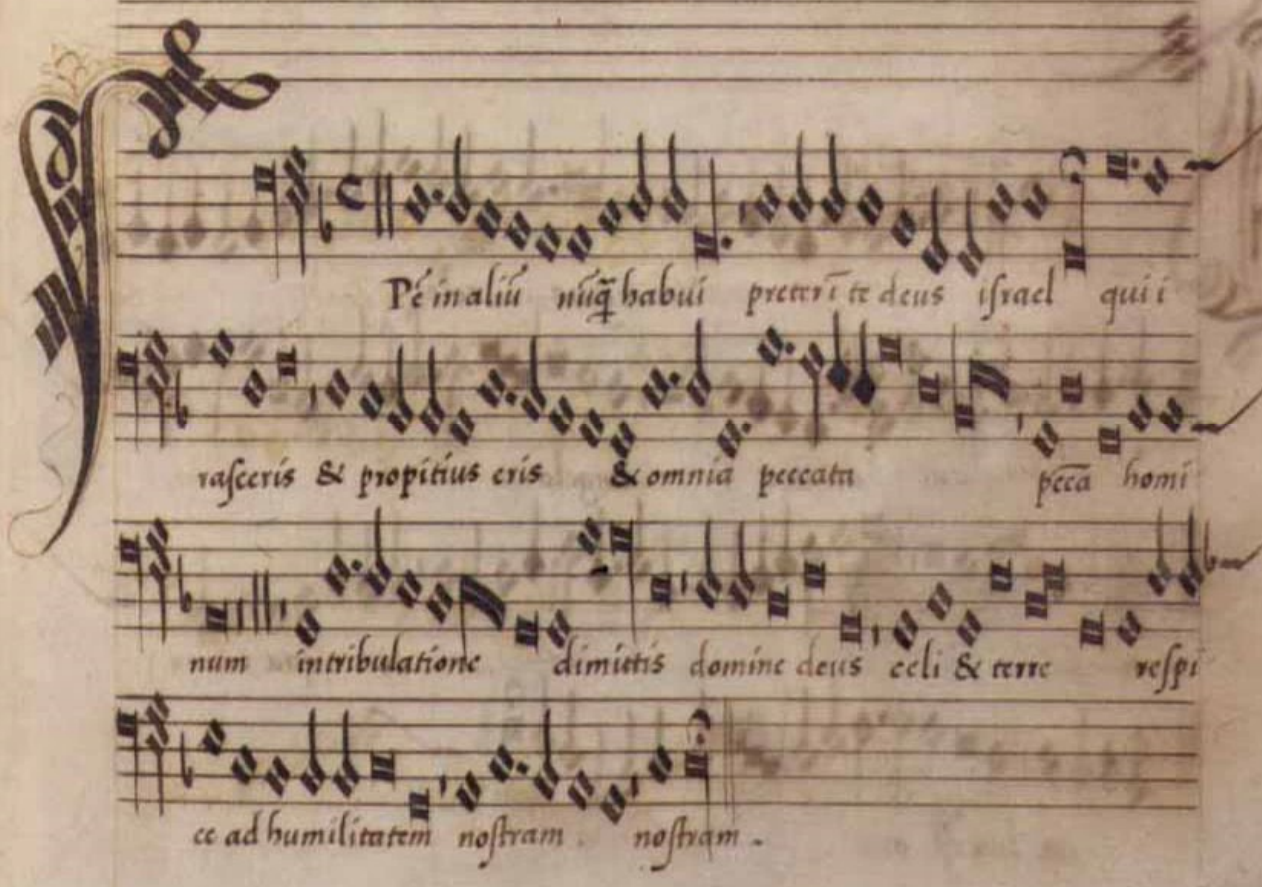 SPē in aliū nūq̄ habui preterī te deus israel qui i
rasceris & propitius eris & omnia peccata pcc̄a homi
num in tribulatione dimittis domine deus celi & terre respi
ce ad humilitatem nostram . nostram .